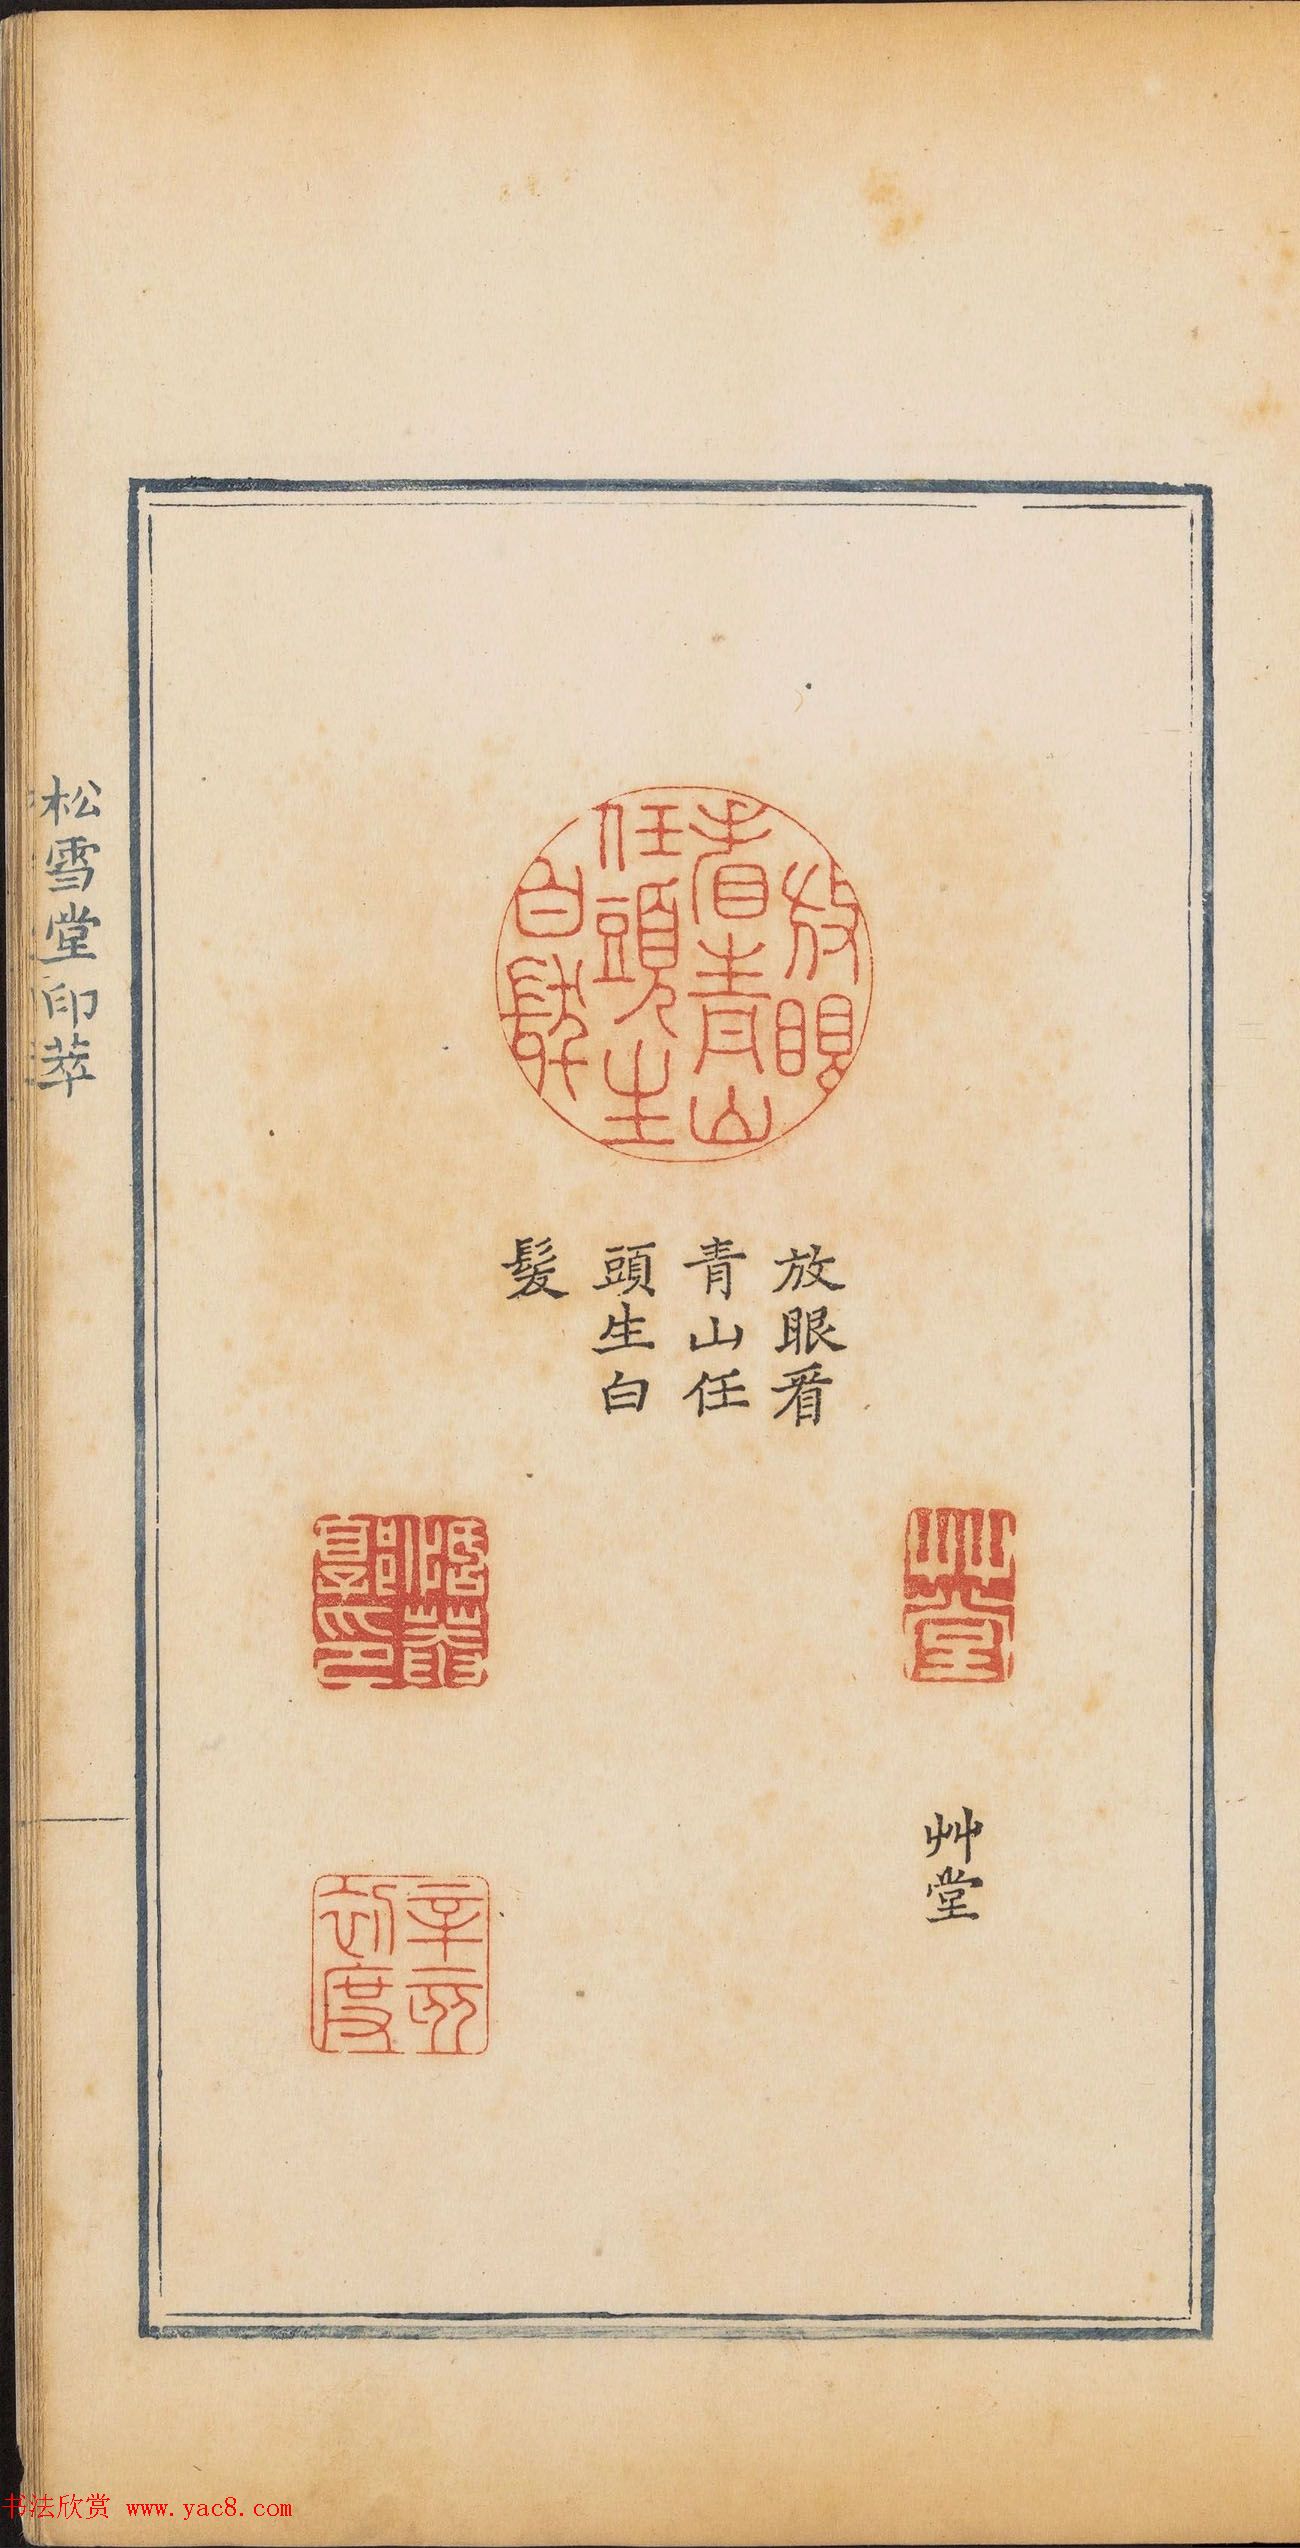 放眼
看青山
任頭生
白髮
放眼看
青山任
頭生白
髮
艸堂
艸堂
松雪堂印萃
书法欣赏 www.yac8.com